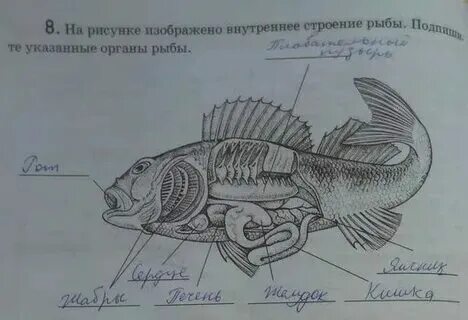 8. На рисунке изображено внутреннее строение рыбы. Подпиши-
те указанные органы рыбы.
Плавательный
пузырь
Рот
Сердце
Яичник
Жабры
Печень
Желудок
Кишка